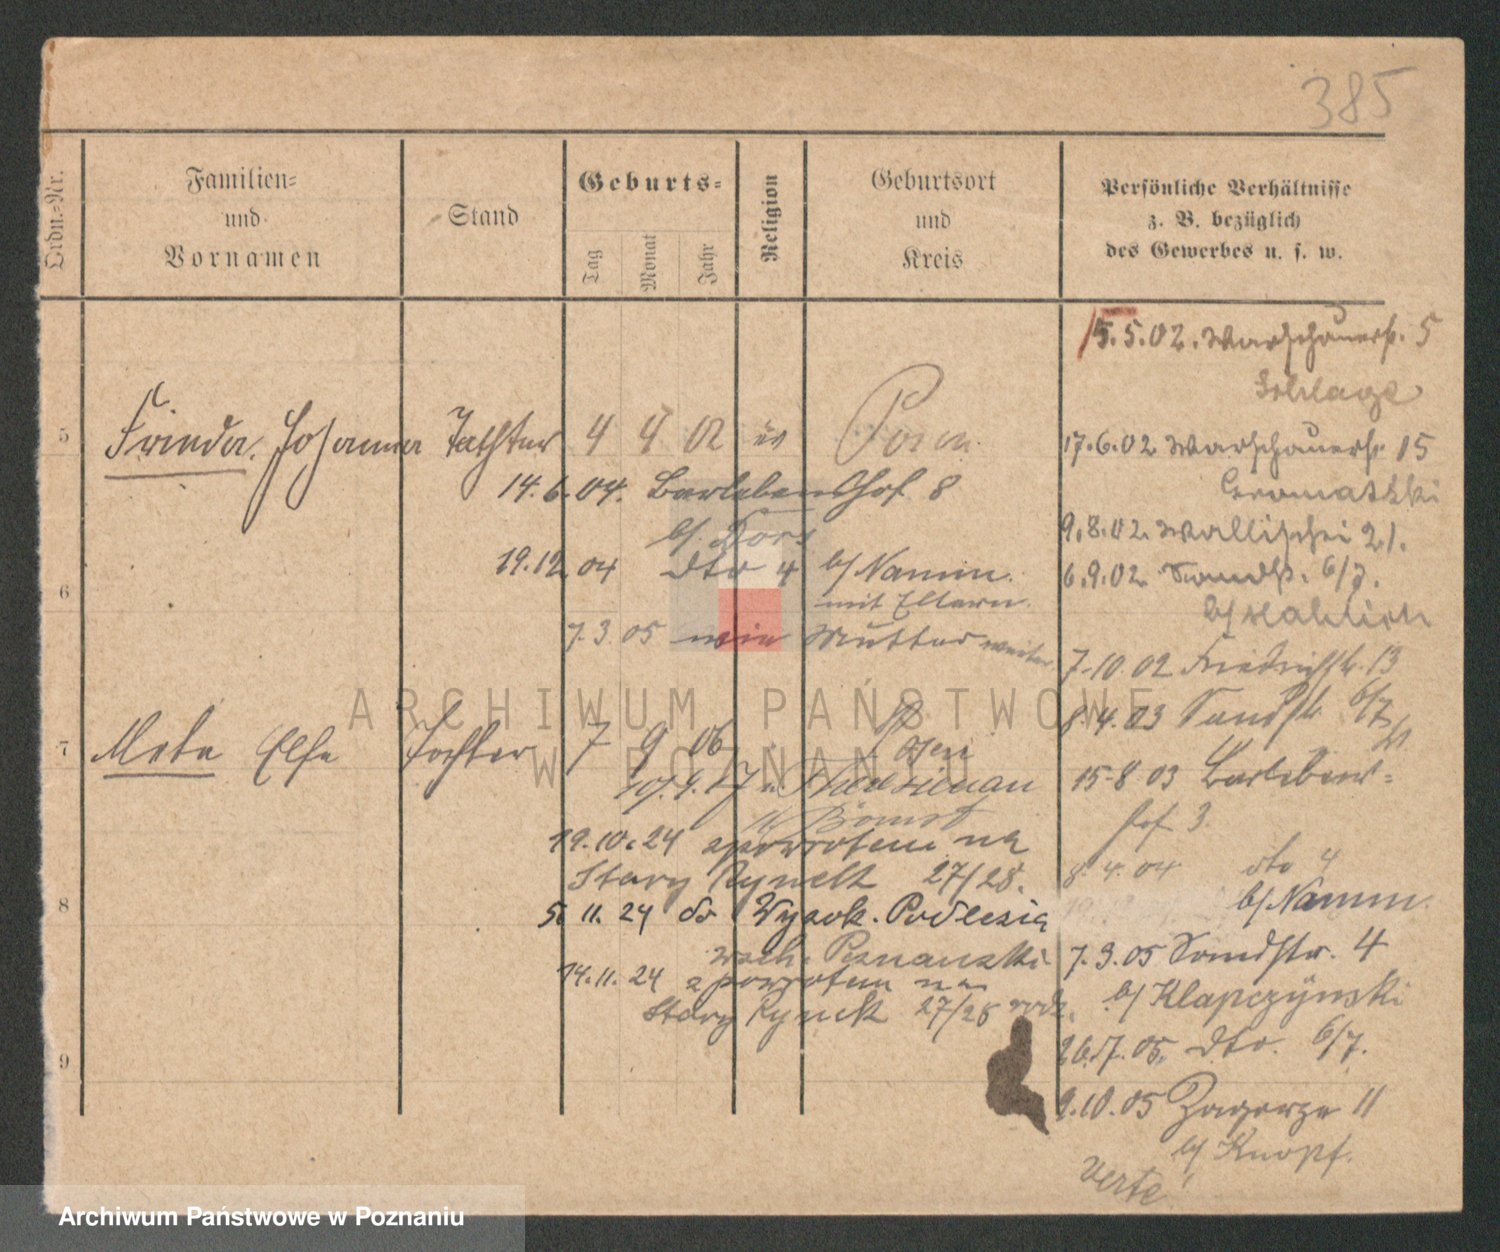 385
Ordn.-Nr.
Familien-
und
Vornamen
Stand
Geburts-
Tag
Monat
Jahr
Religion
Geburtsort
und
Kreis
Persönliche Verhältnisse
z. B. bezüglich
des Gewerbes u. s. w.
5.5.02. Warschauerstr. 5
5 Frieda Johanna Tochter 4 4 02 ev Posen
17.6.02 Warschauerstr. 15
14.6.04. Barlebenshof 8
9.8.02. Wallischei 21.
b/
19.12.04 dto 4 b/ Namm.
6.9.02. Sandstr. 6/7.
6
mit Eltern.
b/
7.3.05 wie Mutter weiter
7.10.02 Friedrichstr. 13
8.4.03 Sandstr 6/7
7 Meta Else Tochter 7 9 06 Posen
15.8.03 Barlebens-
hof 3.
b/ Bomst
19.10.24 z powrotem na
8.4.04 dto 4
Stary Rynek 27/28.
b/ Namm.
8
5.11.24 do Wysok. Podlesia
wsch. Poznanski
7.3.05 Sandstr. 4
14.11.24 z powrotem na
b/ Klapczynski
Stary Rynek 27/28 rodz.
26.7.05. dto. 6/7.
9
9.10.05 Zagorze 11
b/ Knopf.
Verte!
ARCHIWUM PAŃSTWOWE
W POZNANIU
Archiwum Państwowe w Poznaniu